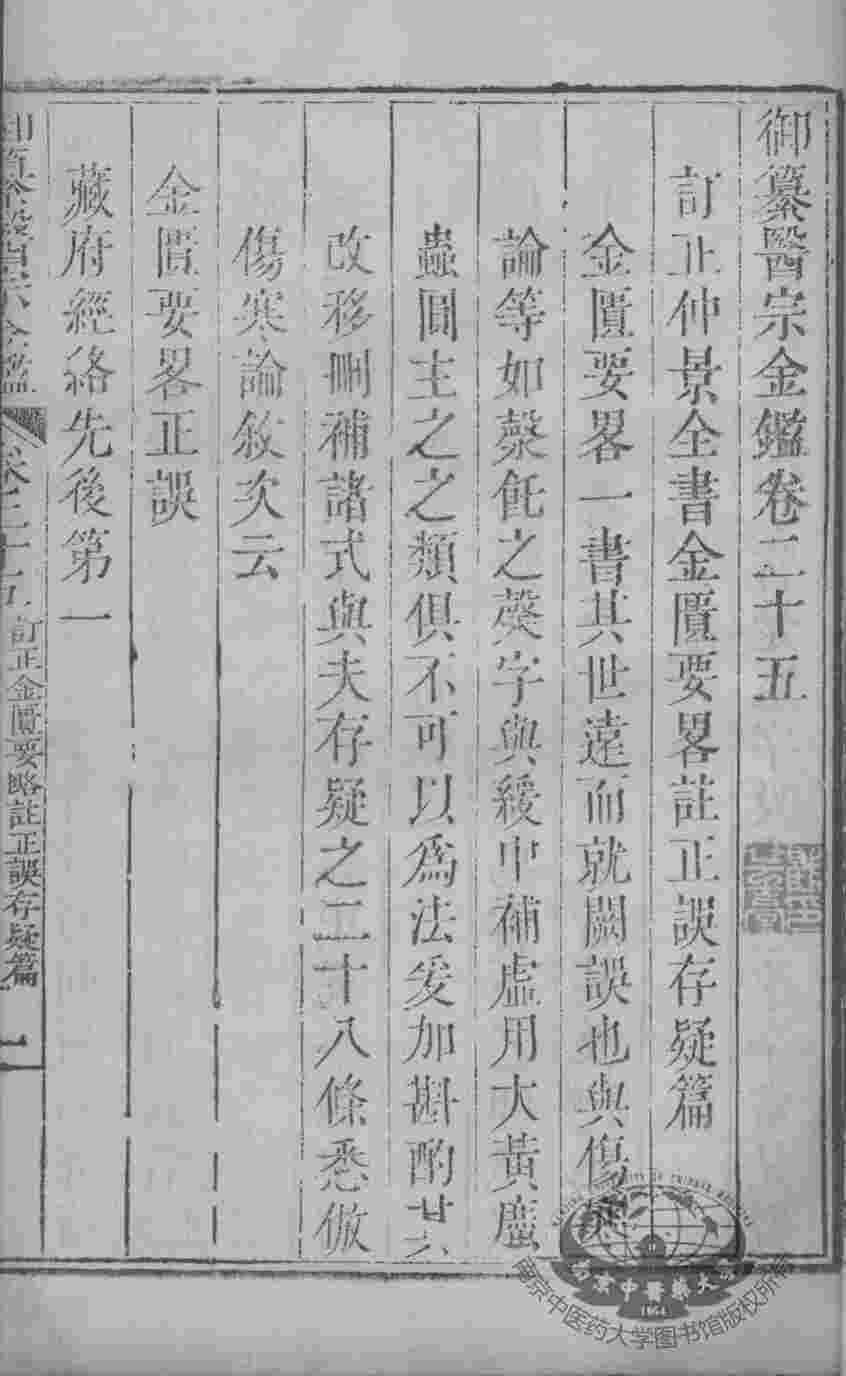 御纂醫宗金鑑卷二十五
訂正仲景全書金匱要畧註正誤存疑篇
金匱要畧一書其世遠而就闕誤也與傷寒
論等如槃飪之䅽字與緩中補虛用大黃䗪
蟲圓主之之類俱不可以為法爰加斟酌其
改移刪補諸式與夫存疑之二十八條悉倣
傷寒論敘次云
金匱要畧正誤
藏府經絡先後第一
御纂醫宗金鑑 卷二十五 訂正金匱要略註正誤存疑篇 一
南京中医药大学图书馆版权所有